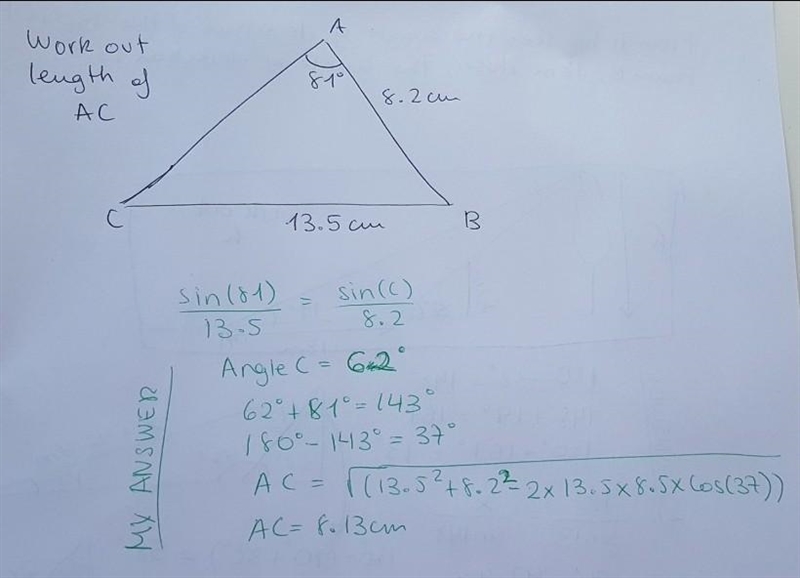 Work out
length of
AC
A
81°
8.2cm
C
13.5cm
B
sin(81) / 13.5 = sin(C) / 8.2
Angle C = 62°
62° + 81° = 143°
180° - 143° = 37°
AC = √((13.5² + 8.2² - 2 x 13.5 x 8.5 x Cos(37))
AC = 8.13cm
MY ANSWER